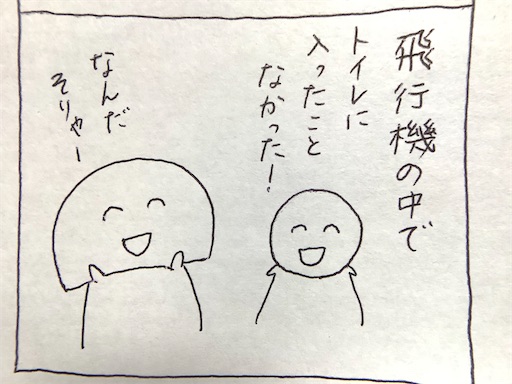 飛行機の中で
トイレに
入ったこと
なかった!
なんだ
そりゃー